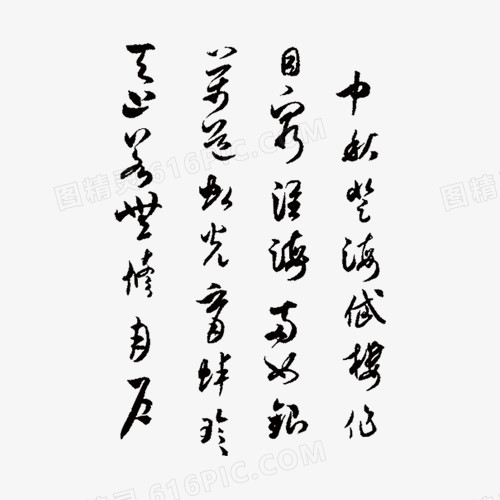 中秋登海岱樓作
目窮淮海兩如銀
萬道虹光育蚌珍
天上若無修月戶
图精灵 616PIC.COM
图精灵 616PIC.COM
图精灵 616PIC.COM